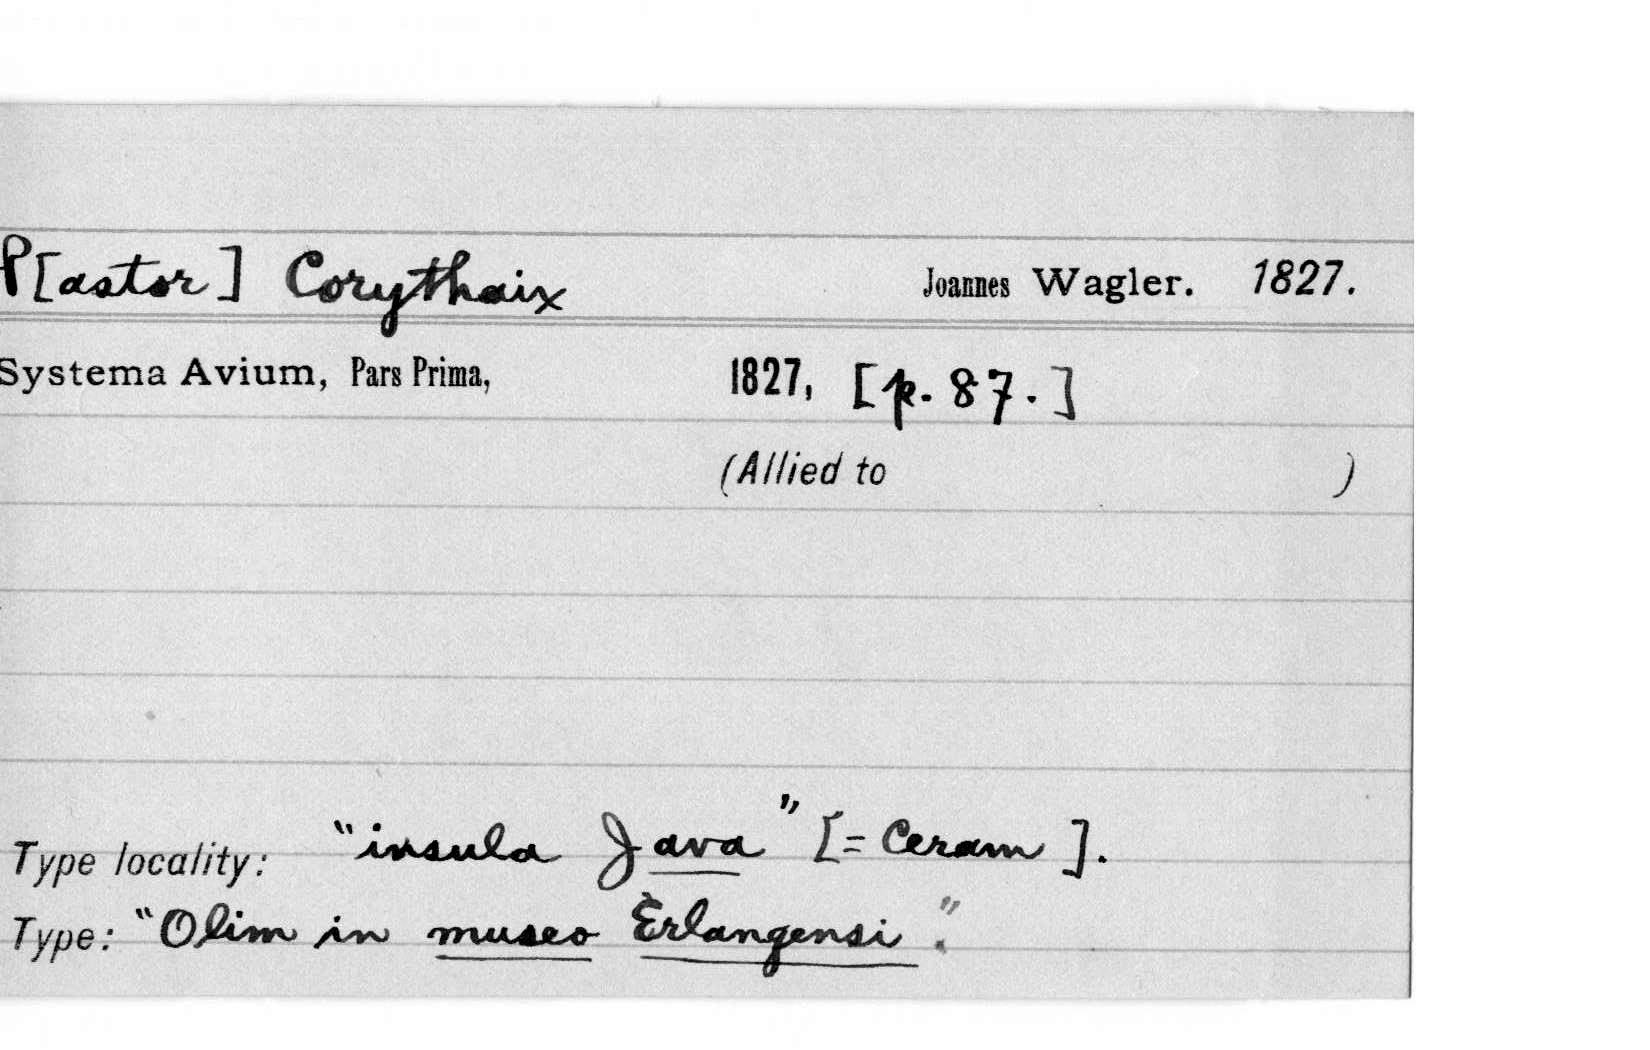 P[astor] Corythaix Joannes Wagler. 1827.
Systema Avium, Pars Prima, 1827, [p. 87.]
(Allied to )
Type locality: "insula Java" [= Ceram].
Type: "Olim in museo Erlangensi."